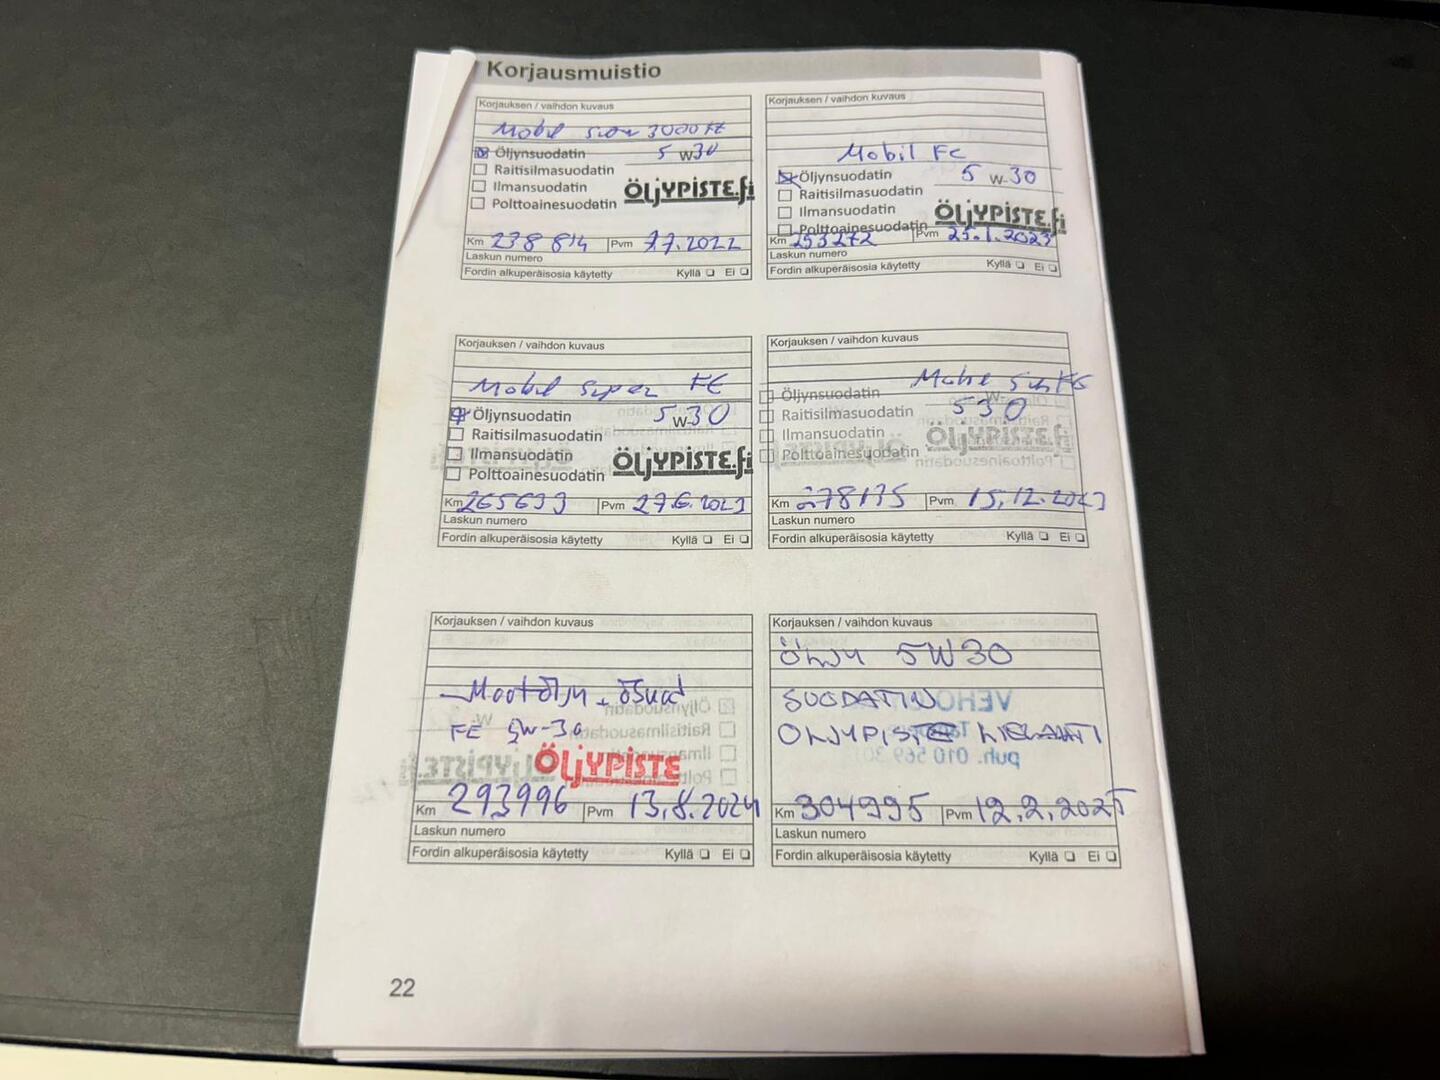 Korjausmuistio
Korjauksen / vaihdon kuvaus
Mobil 3000 FE
Öljynsuodatin 5 W 30
Raitisilmasuodatin
Ilmansuodatin
Polttoainesuodatin
ÖLJYPISTE.fi
Km 238 814 Pvm 7.7.2022
Laskun numero
Fordin alkuperäisosia käytetty Kyllä Ei
Korjauksen / vaihdon kuvaus
Mobil FE
Öljynsuodatin 5 W-30
Raitisilmasuodatin
Ilmansuodatin
Polttoainesuodatin
ÖLJYPISTE.fi
Km 253272 Pvm 25.1.2023
Laskun numero
Fordin alkuperäisosia käytetty Kyllä Ei
Korjauksen / vaihdon kuvaus
Mobil Super FE
Öljynsuodatin 5 W 30
Raitisilmasuodatin
Ilmansuodatin
Polttoainesuodatin
ÖLJYPISTE.fi
Km 265633 Pvm 27.6.2023
Laskun numero
Fordin alkuperäisosia käytetty Kyllä Ei
Korjauksen / vaihdon kuvaus
Öljynsuodatin
Raitisilmasuodatin 5 W- 30
Ilmansuodatin
Polttoainesuodatin
ÖLJYPISTE.fi
Km 278175 Pvm 15.12.2023
Laskun numero
Fordin alkuperäisosia käytetty Kyllä Ei
Korjauksen / vaihdon kuvaus
FE 5W-30
ÖLJYPISTE
Km 293996 Pvm 13.8.2024
Laskun numero
Fordin alkuperäisosia käytetty Kyllä Ei
Korjauksen / vaihdon kuvaus
ÖLJY 5W30
SUODATIN
ÖLJYPISTE
Km 304995 Pvm 12.2.2025
Laskun numero
Fordin alkuperäisosia käytetty Kyllä Ei
22